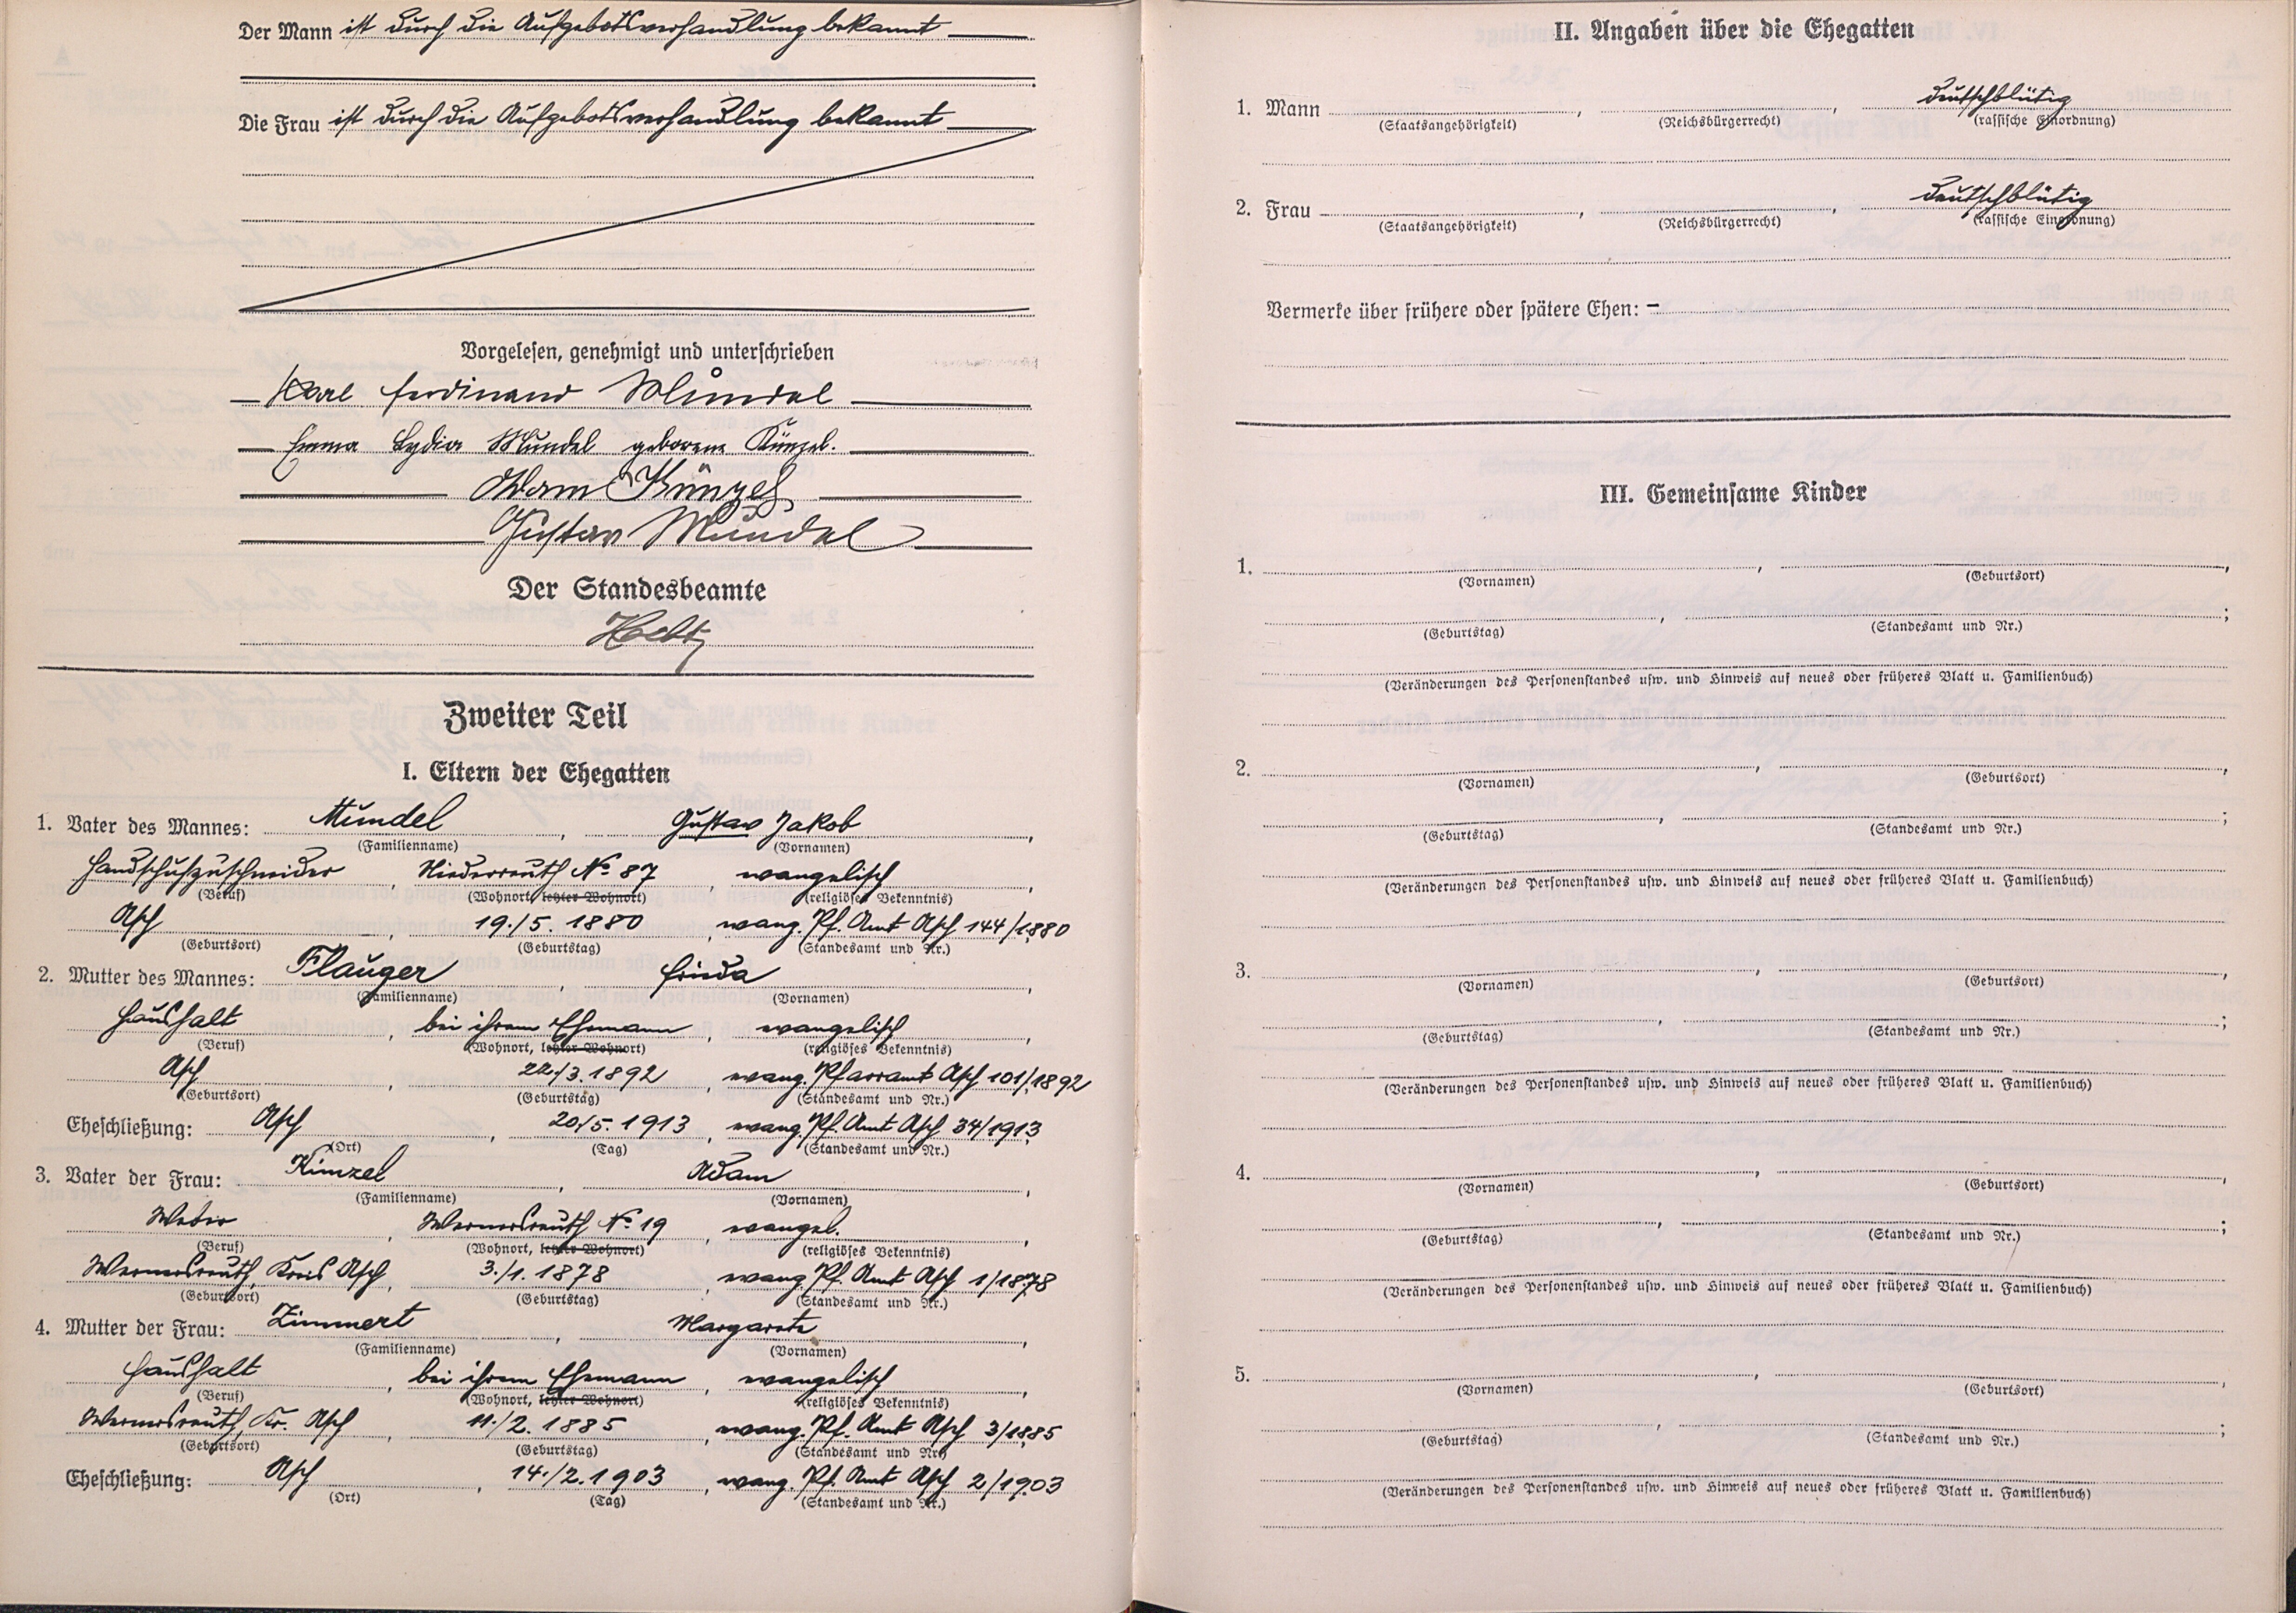 Der Mann ist durch die Aufgebotsverhandlung bekannt
Die Frau ist durch die Aufgebotsverhandlung bekannt
Vorgelesen, genehmigt und unterschrieben
Karl Ferdinand Mundel
Emma Lydia Mundel geborene Künzel.
Adam Künzel
Gustav Mundel
Der Standesbeamte
Zweiter Teil
I. Eltern der Ehegatten
1. Vater des Mannes: Mundel, Gustav Jakob
(Familienname) (Vornamen)
Handschuhzuschneider, Niederreuth No. 87, evangelisch,
(Beruf) (Wohnort, letzter Wohnort) (religiöses Bekenntnis)
Asch, 19./5. 1880, evang. Pf. Amt Asch 144/1880
(Geburtsort) (Geburtstag) (Standesamt und Nr.)
2. Mutter des Mannes: Flauger, Frieda,
(Familienname) (Vornamen)
Haushalt, bei ihrem Ehemann, evangelisch,
(Beruf) (Wohnort, letzter Wohnort) (religiöses Bekenntnis)
Asch, 22./3. 1892, evang. Pfarramt Asch 101/1892
(Geburtsort) (Geburtstag) (Standesamt und Nr.)
Eheschließung: Asch, 20./5. 1913, evang. Pf. Amt Asch 34/1913
(Ort) (Tag) (Standesamt und Nr.)
3. Vater der Frau: Künzel, Adam,
(Familienname) (Vornamen)
Weber, Wernersreuth No. 19, evangel.,
(Beruf) (Wohnort, letzter Wohnort) (religiöses Bekenntnis)
Wernersreuth, Kreis Asch, 3./1. 1878, evang. Pf. Amt Asch 1/1878
(Geburtsort) (Geburtstag) (Standesamt und Nr.)
4. Mutter der Frau: Zimmert, Margarete,
(Familienname) (Vornamen)
Haushalt, bei ihrem Ehemann, evangelisch,
(Beruf) (Wohnort, letzter Wohnort) (religiöses Bekenntnis)
Wernersreuth, Kr. Asch, 11./2. 1885, evang. Pf. Amt Asch 3/1885
(Geburtsort) (Geburtstag) (Standesamt und Nr.)
Eheschließung: Asch, 14./2. 1903, evang. Pf. Amt Asch 2/1903
(Ort) (Tag) (Standesamt und Nr.)
II. Angaben über die Ehegatten
1. Mann , , deutschblütig
(Staatsangehörigkeit) (Reichsbürgerrecht) (rassische Einordnung)
2. Frau , , deutschblütig
(Staatsangehörigkeit) (Reichsbürgerrecht) (rassische Einordnung)
Vermerke über frühere oder spätere Ehen: –
III. Gemeinsame Kinder
1. , ,
(Vornamen) (Geburtsort)
, ;
(Geburtstag) (Standesamt und Nr.)
(Veränderungen des Personenstandes usw. und Hinweis auf neues oder früheres Blatt u. Familienbuch)
2. , ,
(Vornamen) (Geburtsort)
, ;
(Geburtstag) (Standesamt und Nr.)
(Veränderungen des Personenstandes usw. und Hinweis auf neues oder früheres Blatt u. Familienbuch)
3. , ,
(Vornamen) (Geburtsort)
, ;
(Geburtstag) (Standesamt und Nr.)
(Veränderungen des Personenstandes usw. und Hinweis auf neues oder früheres Blatt u. Familienbuch)
4. , ,
(Vornamen) (Geburtsort)
, ;
(Geburtstag) (Standesamt und Nr.)
(Veränderungen des Personenstandes usw. und Hinweis auf neues oder früheres Blatt u. Familienbuch)
5. , ,
(Vornamen) (Geburtsort)
, ;
(Geburtstag) (Standesamt und Nr.)
(Veränderungen des Personenstandes usw. und Hinweis auf neues oder früheres Blatt u. Familienbuch)